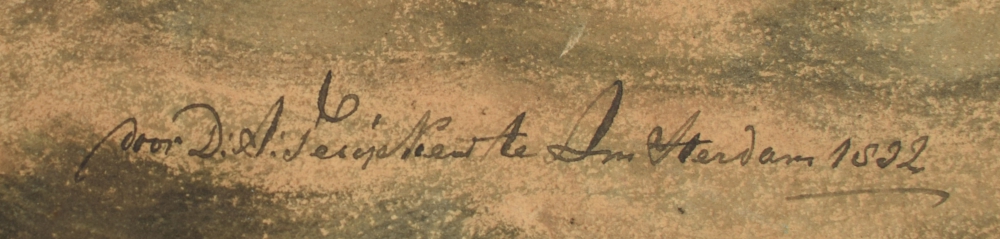 door D: A: Teupken te Amsterdam 1832